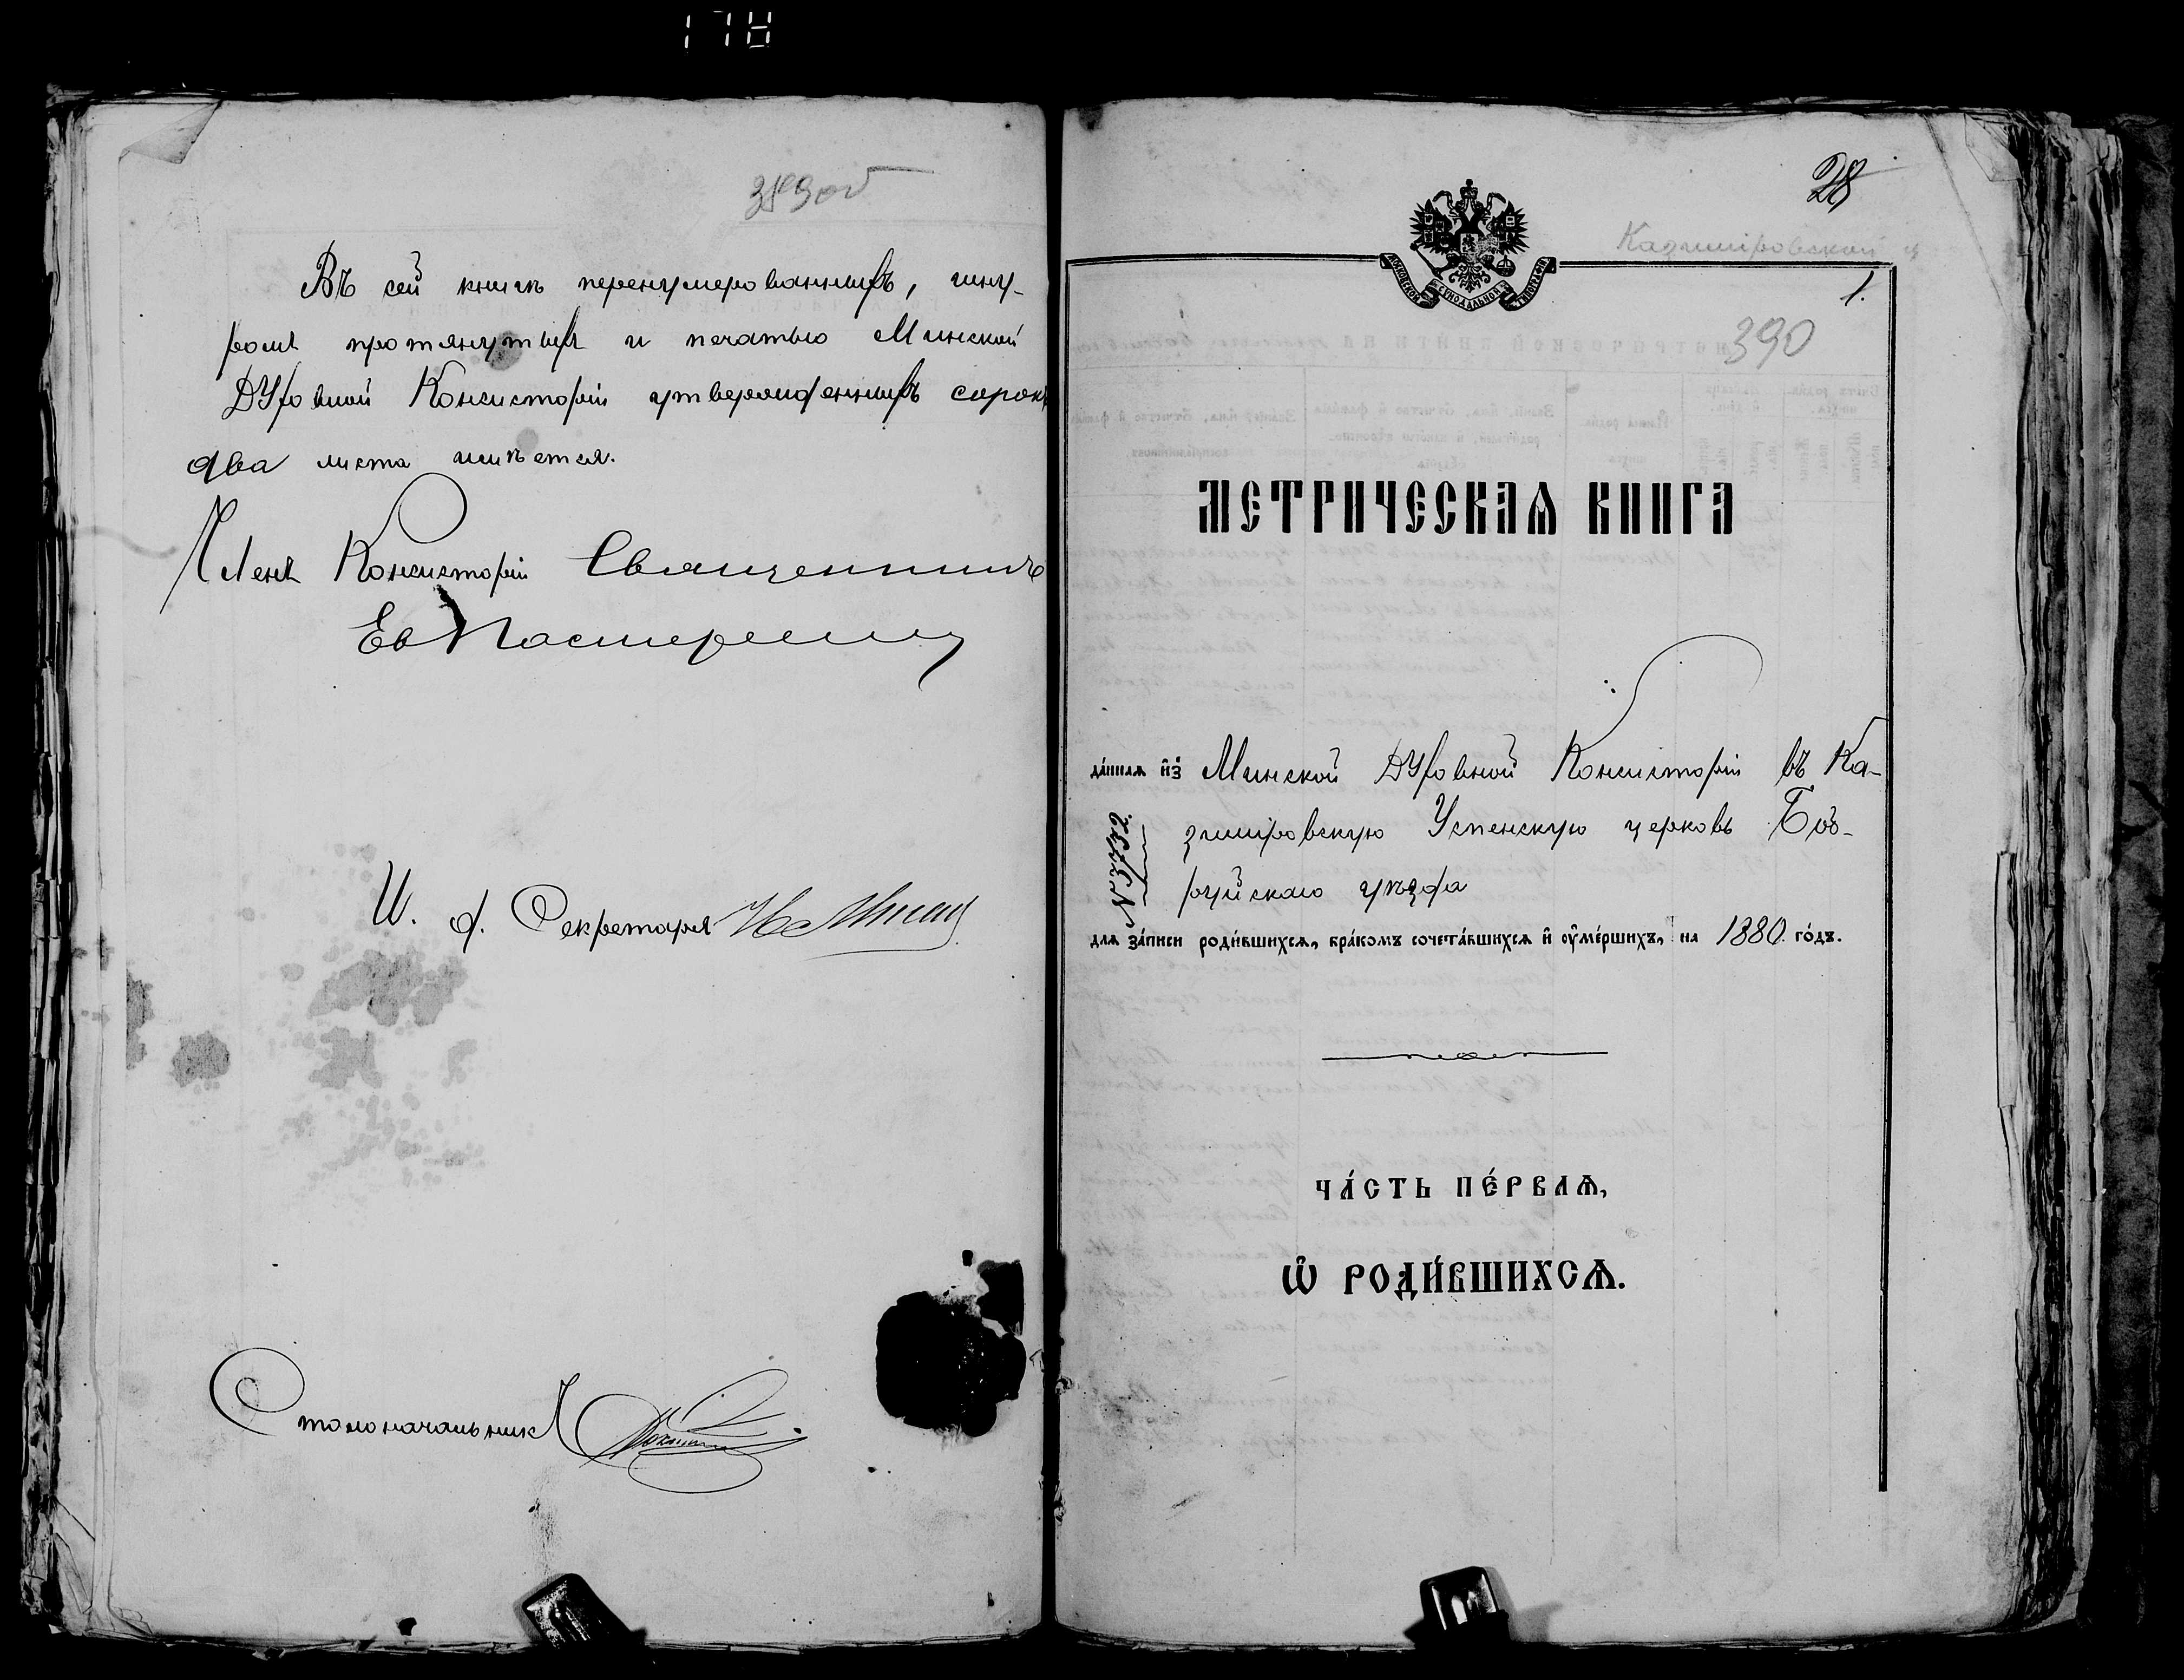 178
389об
Въ сей книгѣ перенумерованныхъ, шну-
ромъ протянутыхъ и печатью Минской
Духовной Консисторіи утвержденныхъ сорокъ
два листа имѣется.
Членъ Консисторіи Священникъ
И. д. Секретаря
Столоначальникъ
28
Казимировской ц
МОСКОВСКОЙ СѴНОДАЛЬНОЙ ТИПОГРАФІИ
1.
390
МЕТРИЧЕСКАѦ КНИГА
да́ннаѧ и҆з̾ Минской Духовной Консисторіи въ Ка-
зимировскую Успенскую церковь Боб-
руйскаго уѣзда
длѧ за́писи роди́вшихсѧ, бра́комъ сочета́вшихсѧ и҆ ᲂу҆ме́ршихъ, на 1880 го́дъ.
ЧА́СТЬ ПЕ́РВАѦ,
Ѽ РОДИ́ВШИХСѦ.